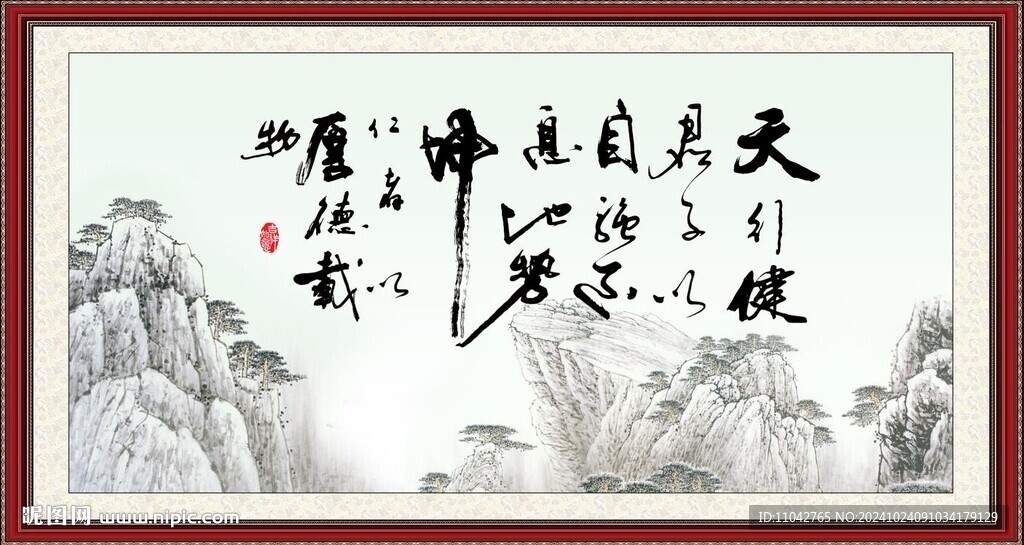 天行健
君子以
自强不
息地势
坤
仁者以
厚德载
物
昵图网 www.nipic.com
ID:11042765 NO:20241024091034179129